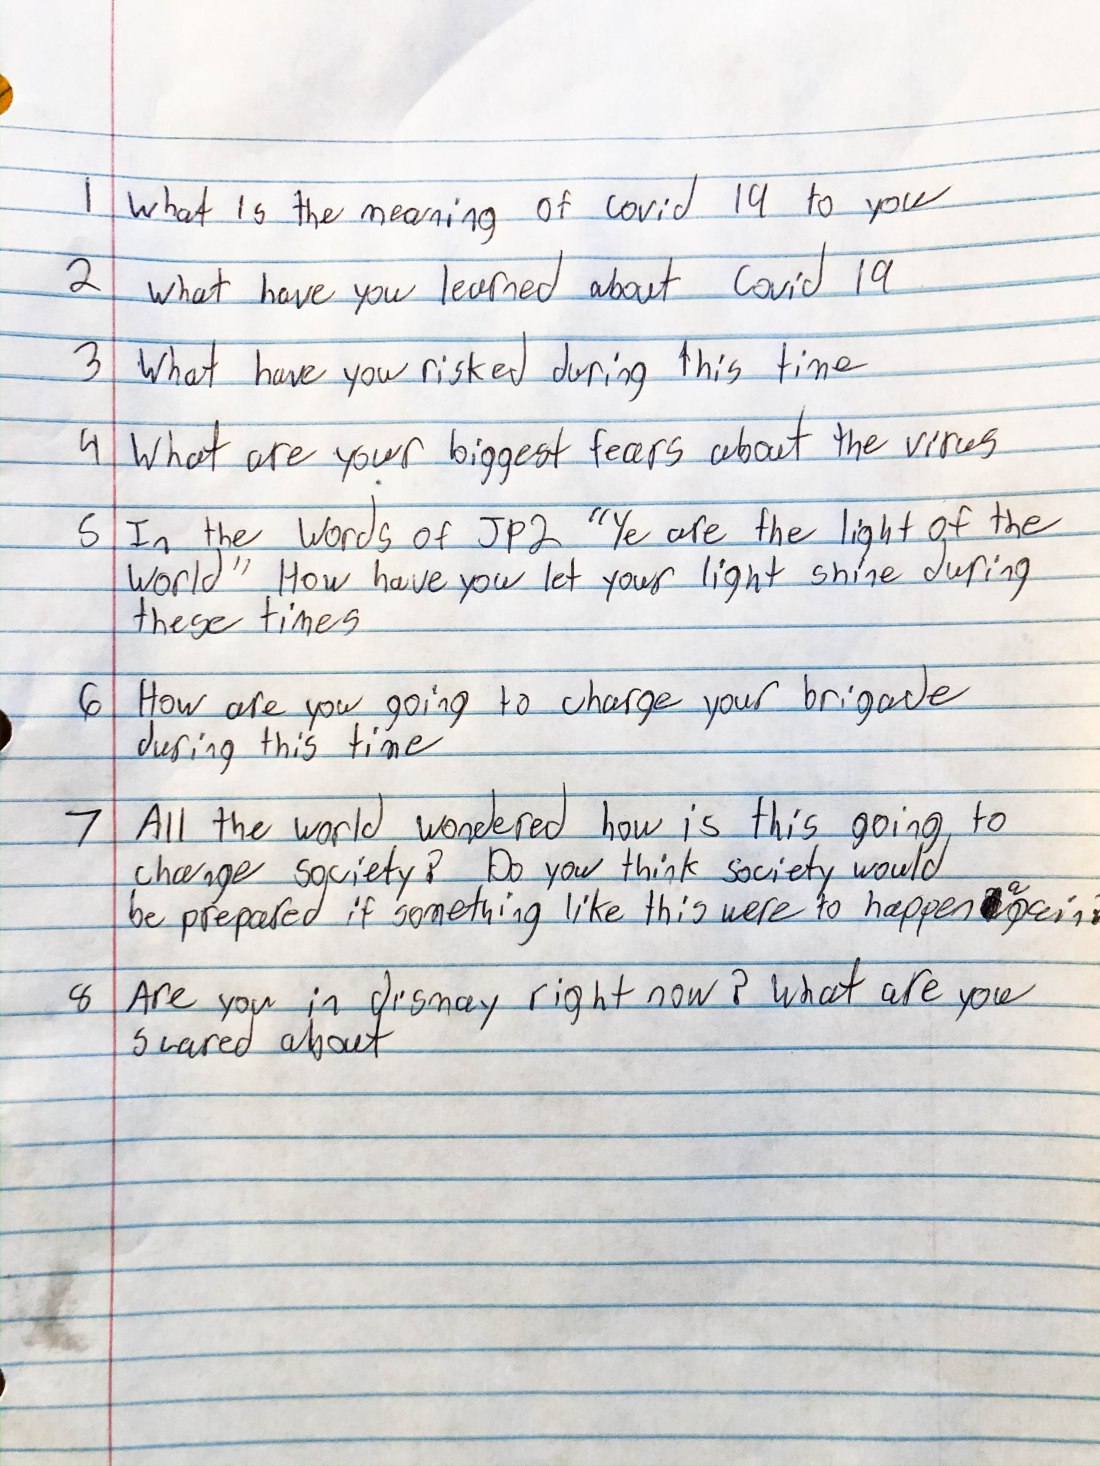 1 What is the meaning of covid 19 to you
2 What have you learned about Covid 19
3 What have you risked during this time
4 What are your biggest fears about the virus
5 In the words of JP2 "Ye are the light of the
world" How have you let your light shine during
these times
6 How are you going to charge your brigade
during this time
7 All the world wondered how is this going to
change society? Do you think society would
be prepared if something like this were to happen again?
8 Are you in dismay right now? What are you
scared about